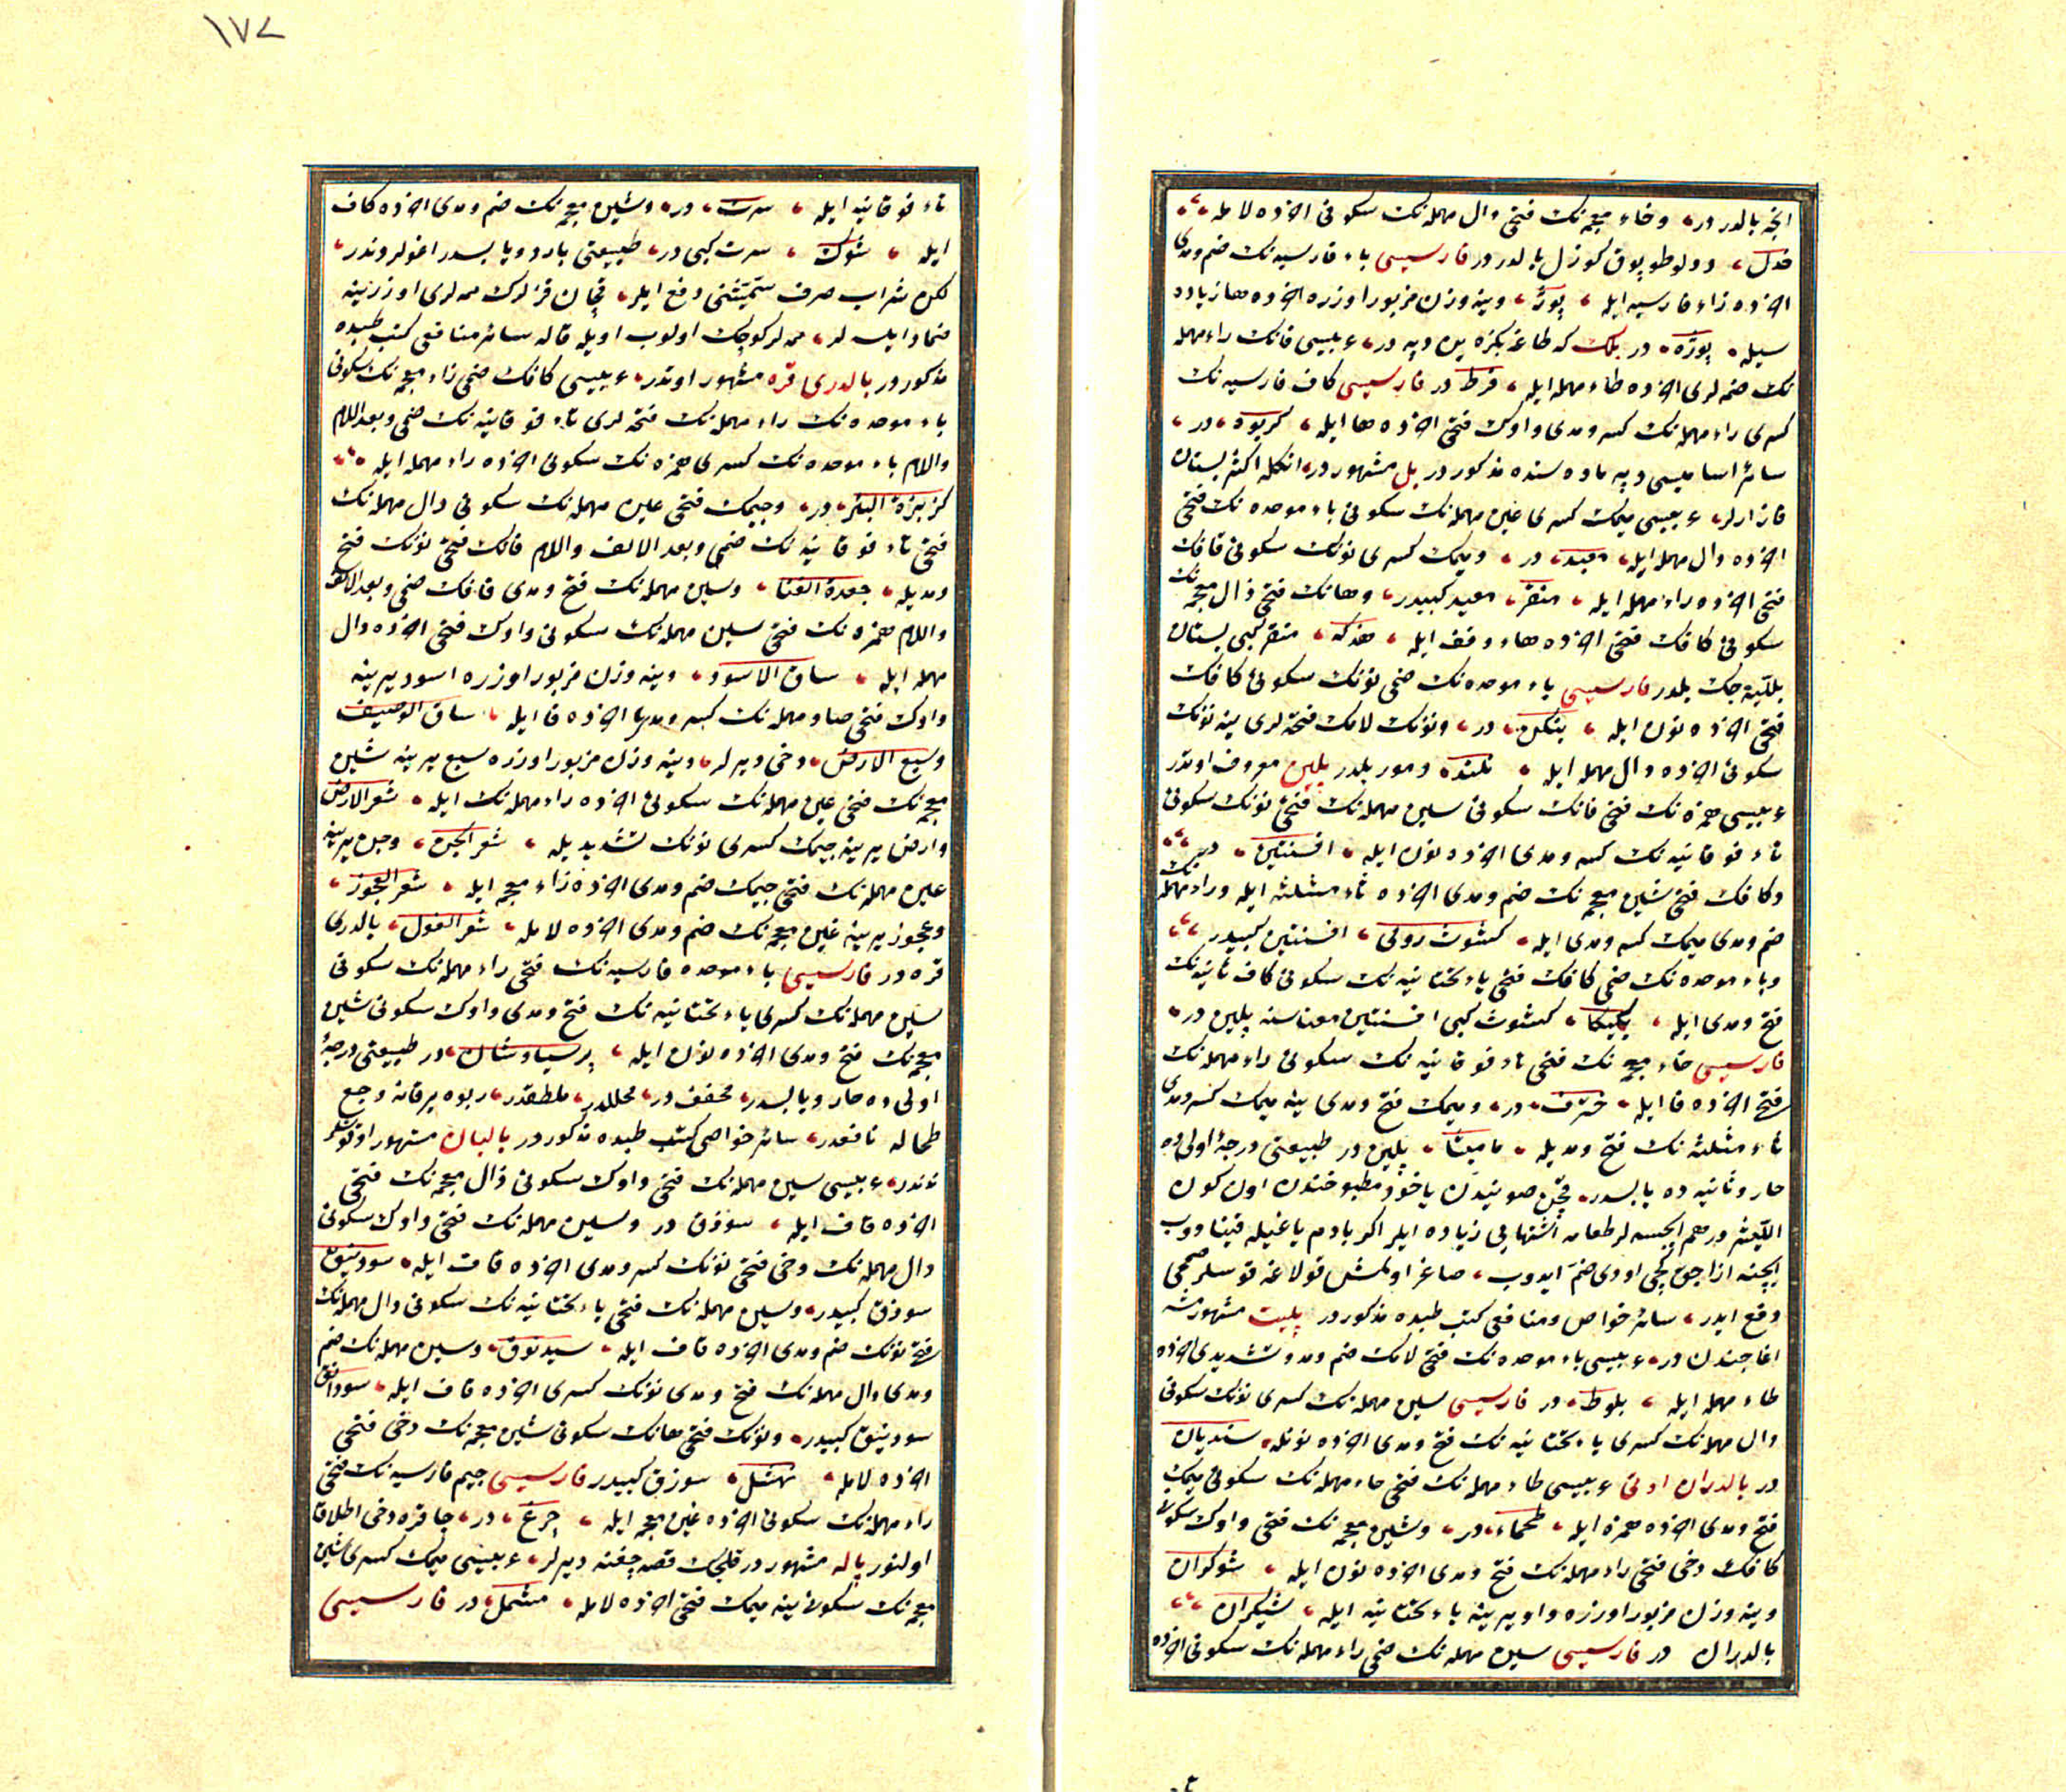 ١٧٢
انجه بالدر در وخاء معجمه نك فتحى دال مهمله نك سكونى اخرده لامله
خدل، دولو طوپوق كوزل بالدر در فارسيسى باء فارسيه نك ضم ومدى
اخرده زاء فارسيه ايله پوژ، وينه وزن مزبور اوزره اخرده ها زياده
سيله پوژه در بلك كه طاغه بكزه ين دپه در، عربيسى فانك راء مهمله
نك ضمه لرى اخرده طاء مهمله ايله، فرط در فارسيسى كاف فارسيه نك
كسرى راء مهمله نك كسر ومدى واوك فتحى اخرده ها ايله، كريوه، در،
سائر اساميسى دپه ماده سنده مذكور در بل مشهور در، انكله اكثر بستان
قازارلر، عربيسى ميمك كسرى عين مهمله نك سكونى باء موحده نك فتحى
اخرده دال مهمله ايله، معبد، در، وميمك كسرى نونك سكونى قافك
فتحى اخرده راء مهمله ايله، منقر، معبد كبيدر، وهانك فتحى ذال معجمه نك
سكونى كافك فتحى اخرده هاء وقف ايله، هذكه، منقر كبى بستان
بلليه جك بلدر فارسيسى باء موحده نك ضمى نونك سكونى كافك
فتحى اخرده نون ايله، بنكن، در، ونونك لامك فتحه لرى ينه نونك
سكونى اخرده دال مهمله ايله نلند، دمور بلدر پلين معروف اوتدر
عربيسى همزه نك فتحى فانك سكونى سين مهمله نك فتحى نونك سكونى
تاء فوقانيه نك كسر ومدى اخرده نون ايله، افسنتين، در
وكافك فتحى شين معجمه نك ضم ومدى اخرده ثاء مثلثه ايله وراء مهمله نك
ضم ومدى ميمك كسر ومدى ايله، كشوث رومى، افسنتين كبيدر
وباء موحده نك ضمى كافك فتحى ياء تحتانيه نك سكونى كاف ثانيه نك
فتح ومدى ايله، بكيكا، كشوث كبى افسنتين معناسنه پلين در
فارسيسى خاء معجمه نك فتحى تاء فوقانيه نك سكونى راء مهمله نك
فتحى اخرده فا ايله، خترف، در، وميمك فتح ومدى ينه ميمك كسر ومدى
ثاء مثلثه نك فتح ومديله، ماميثا، پلين در طبيعتى درجه اولى ده
حار وثانيه ده يابسدر، قچن صويندن ياخود مطبوخندن اون كون
ايچنه ازاجق كچى اودى ضم ايدوب، صاغر اولمش قولاغه قوسلر صممى
دفع ايدر، سائر خواص ومنافعى كتب طبده مذكور در پليت مشهور ميشه
اغاجندن در، عربيسى باء موحده نك فتحى لامك ضم ومد وتشديدى اخرده
طاء مهمله ايله، بلوط، در فارسيسى سين مهمله نك كسرى نونك سكونى
دال مهمله نك كسرى ياء تحتانيه نك فتح ومدى اخرده نونله، سنديان
در بالدران اوتى عربيسى طاء مهمله نك فتحى حاء مهمله نك سكونى ميمك
فتح ومدى اخرده همزه ايله، طحماء، در، وشين معجمه نك فتحى واوك سكونى
كافك دخى فتحى راء مهمله نك فتح ومدى اخرده نون ايله، شوكران
وينه وزن مزبور اوزره واو يرينه ياء تحتانيه ايله، شيكران
بالدران در فارسيسى سين مهمله نك ضمى راء مهمله نك سكونى اخرده
تاء فوقانيه ايله، سرت، در، وشين معجمه نك ضم ومدى اخرده كاف
ايله، شوك، سرت كبى در، طبيعتى بارد ويابسدر اغولروندر،
لكن شراب صرف سميتنى دفع ايلر، قچان قزلرك ممه لرى اوزرينه
ضماد ايلسه لر، ممه لر كوجك اولوب اويله قاله سائر منافعى كتب طبده
مذكور در بالدرى قره مشهور اوتدر، عربيسى كافك ضمى زاء معجمه نك سكونى
باء موحده نك راء مهمله نك فتحه لرى تاء فوقانيه نك ضمى وبعد اللام
واللام باء موحده نك كسرى همزه نك سكونى اخرده راء مهمله ايله
كزبرة البئر، در، وجيمك فتحى عين مهمله نك سكونى دال مهمله نك
فتحى تاء فوقانيه نك ضمى وبعد الالف واللام قافك فتحى نونك فتح
ومديله، جعدة القنا، وسين مهمله نك فتح ومدى قافك ضمى وبعد الالف
واللام همزه نك فتحى سين مهمله نك سكونى واوك فتحى اخرده دال
مهمله ايله، ساق الاسود، وينه وزن مزبور اوزره اسود يرينه
واوك فتحى صاد مهمله نك كسر ومدى اخرده فا ايله، ساق الوصيف
وسبع الارض، دخى ديرلر، وينه وزن مزبور اوزره سبع يرينه شين
معجمه نك فتحى عين مهمله نك سكونى اخرده راء مهمله نك ايله، شعر الارض
وارض يرينه جيمك كسرى نونك تشديديله، شعر الجن، وجن يرينه
عين مهمله نك فتحى جيمك ضم ومدى اخرده زاء معجمه ايله، شعر العجوز،
وعجوز يرينه غين معجمه نك ضم ومدى اخرده لامله، شعر الغول، بالدرى
قره در فارسيسى باء موحده فارسيه نك فتحى راء مهمله نك سكونى
سين مهمله نك كسرى ياء تحتانيه نك فتح ومدى واوك سكونى شين
معجمه نك فتح ومدى اخرده نون ايله، پرسياوشان، در طبيعتى درجه
اولى ده حار ويابسدر، مجفف در، محللدر، ملطفدر، ربوه يرقانه وجع
طحاله نافعدر، سائر خواصى كتب طبده مذكور در بالبان مشهور اوتور
عربيسى سين مهمله نك فتحى واوك سكونى ذال معجمه نك فتحى
اخرده قاف ايله، سوذق در وسين مهمله نك فتحى واوك سكونى
دال مهمله نك دخى فتحى نونك كسر ومدى اخرده قاف ايله، سودنيق
سوذق كبيدر، وسين مهمله نك فتحى ياء تحتانيه نك سكونى دال مهمله نك
فتحى نونك ضم ومدى اخرده قاف ايله، سيدنوق، وسين مهمله نك ضم
ومدى دال مهمله نك فتح ومدى نونك كسرى اخرده قاف ايله، سودانق
سودنيق كبيدر، ونونك فتحى هانك سكونى شين معجمه نك دخى فتحى
اخرده لامله، نهشل، سوذق كبيدر فارسيسى جيم فارسيه نك فتحى
راء مهمله نك سكونى اخرده غين معجمه ايله، چرغ، در، چاقره دخى اطلاق
اولنور پاله مشهور در قليجك قصه جغنه ديرلر، عربيسى ميمك كسرى شين
معجمه نك سكونى ينه ميمك فتحى اخرده لامله، مشمل، در فارسيسى